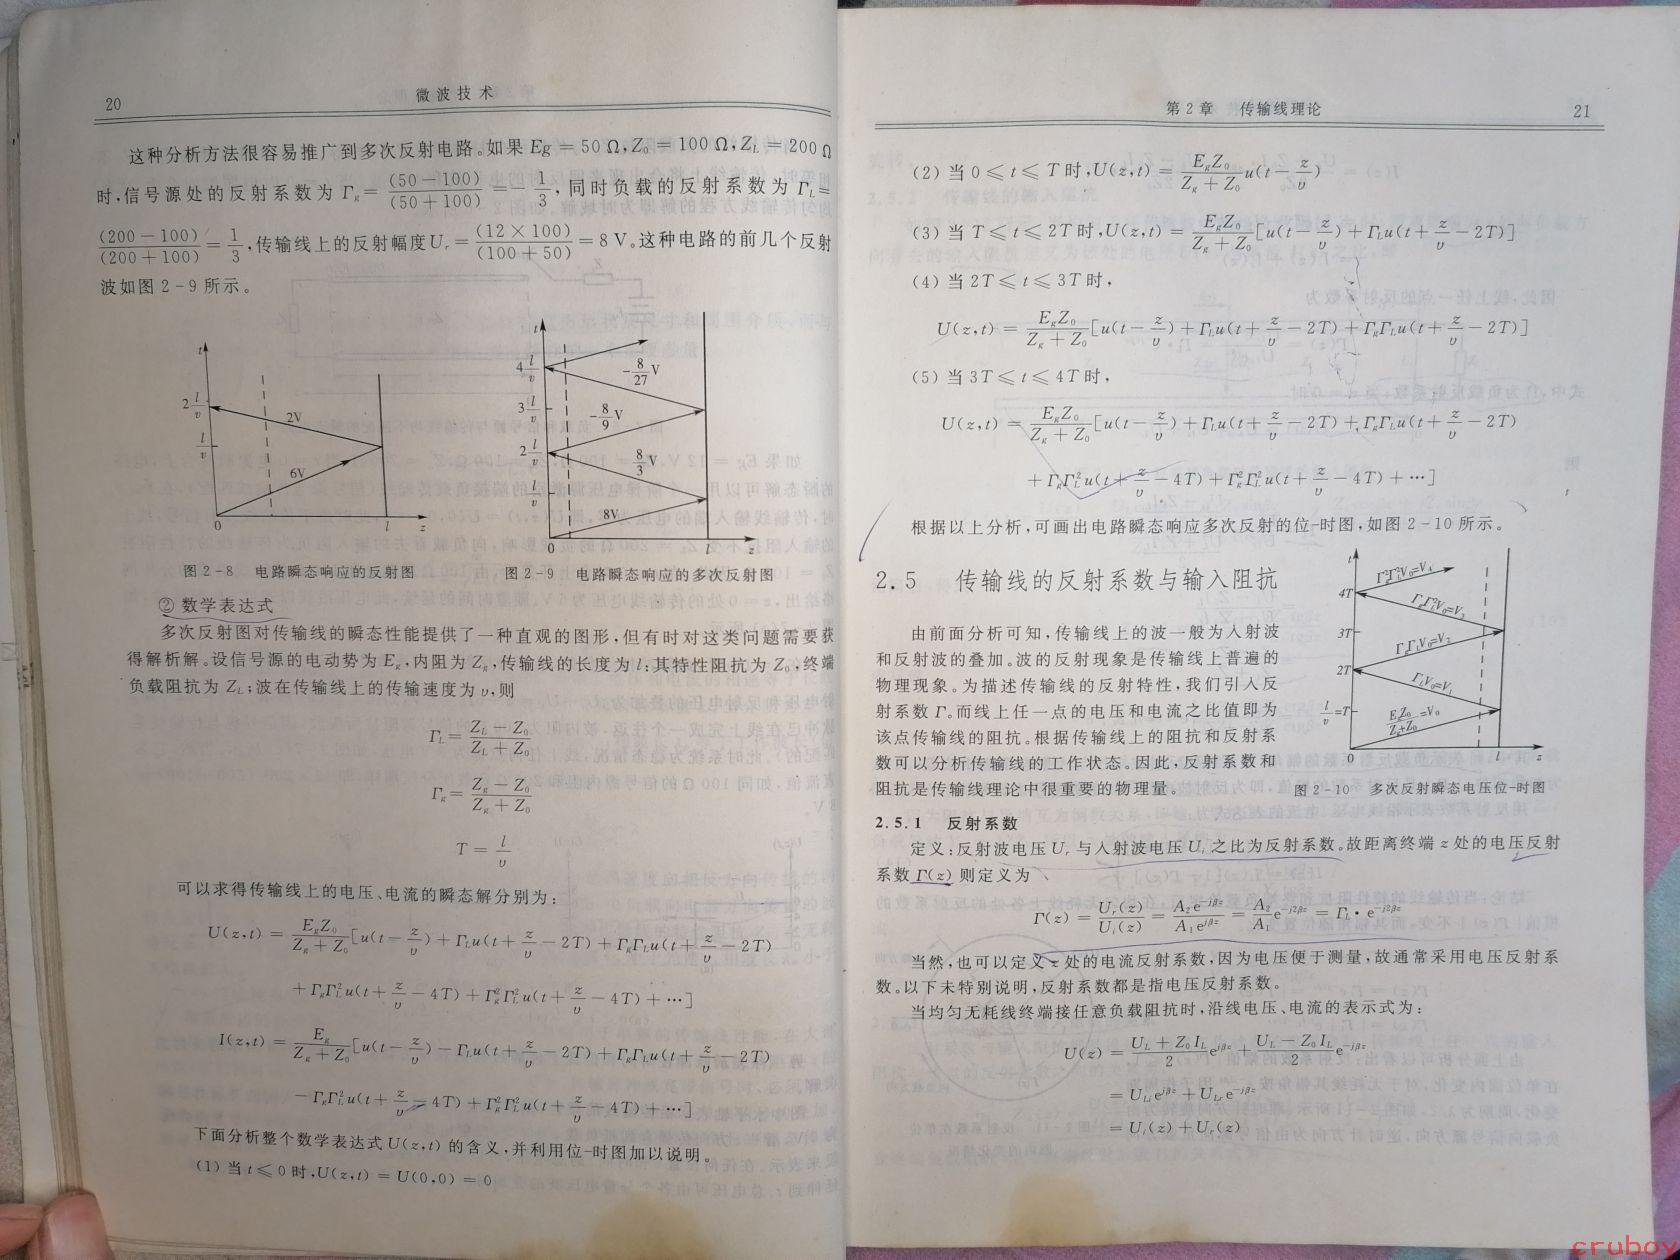 20
微波技术
这种分析方法很容易推广到多次反射电路。如果 Eg = 50 Ω, Z₀ = 100 Ω, Z_L = 200 Ω
时,信号源处的反射系数为 Γ_g = (50-100)/(50+100) = -1/3, 同时负载的反射系数为 Γ_L =
(200-100)/(200+100) = 1/3, 传输线上的反射幅度 U_r = (12×100)/(100+50) = 8 V。这种电路的前几个反射
波如图 2-9 所示。
t
2 l/v
l/v
2V
6V
0
l
z
t
4 l/v
3 l/v
2 l/v
l/v
-8/27 V
-8/9 V
8/3 V
8V
0
l
z
图 2-8 电路瞬态响应的反射图
图 2-9 电路瞬态响应的多次反射图
② 数学表达式
多次反射图对传输线的瞬态性能提供了一种直观的图形,但有时对这类问题需要获
得解析解。设信号源的电动势为 E_g,内阻为 Z_g,传输线的长度为 l;其特性阻抗为 Z₀,终端
负载阻抗为 Z_L;波在传输线上的传输速度为 υ,则
Γ_L = (Z_L - Z₀)/(Z_L + Z₀)
Γ_g = (Z_g - Z₀)/(Z_g + Z₀)
T = l/υ
可以求得传输线上的电压、电流的瞬态解分别为:
U(z,t) = E_gZ₀/(Z_g + Z₀) [u(t - z/υ) + Γ_L u(t + z/υ - 2T) + Γ_gΓ_L u(t + z/υ - 2T)
+ Γ_gΓ_L² u(t + z/υ - 4T) + Γ_g²Γ_L² u(t + z/υ - 4T) + …]
I(z,t) = E_g/(Z_g + Z₀) [u(t - z/υ) - Γ_L u(t + z/υ - 2T) + Γ_gΓ_L u(t + z/υ - 2T)
- Γ_gΓ_L² u(t + z/υ - 4T) + Γ_g²Γ_L² u(t + z/υ - 4T) + …]
下面分析整个数学表达式 U(z,t) 的含义,并利用位-时图加以说明。
(1) 当 t ≤ 0 时, U(z,t) = U(0,0) = 0
第 2 章 传输线理论
21
(2) 当 0 ≤ t ≤ T 时, U(z,t) = E_gZ₀/(Z_g + Z₀) u(t - z/υ)
(3) 当 T ≤ t ≤ 2T 时, U(z,t) = E_gZ₀/(Z_g + Z₀) [u(t - z/υ) + Γ_L u(t + z/υ - 2T)]
(4) 当 2T ≤ t ≤ 3T 时,
U(z,t) = E_gZ₀/(Z_g + Z₀) [u(t - z/υ) + Γ_L u(t + z/υ - 2T) + Γ_gΓ_L u(t + z/υ - 2T)]
(5) 当 3T ≤ t ≤ 4T 时,
U(z,t) = E_gZ₀/(Z_g + Z₀) [u(t - z/υ) + Γ_L u(t + z/υ - 2T) + Γ_gΓ_L u(t + z/υ - 2T)
+ Γ_gΓ_L² u(t + z/υ - 4T) + Γ_g²Γ_L² u(t + z/υ - 4T) + …]
根据以上分析,可画出电路瞬态响应多次反射的位-时图,如图 2-10 所示。
2.5 传输线的反射系数与输入阻抗
由前面分析可知,传输线上的波一般为入射波
和反射波的叠加。波的反射现象是传输线上普遍的
物理现象。为描述传输线的反射特性,我们引入反
射系数 Γ。而线上任一点的电压和电流之比值即为
该点传输线的阻抗。根据传输线上的阻抗和反射系
数可以分析传输线的工作状态。因此,反射系数和
阻抗是传输线理论中很重要的物理量。
t
4T
3T
2T
l/v = T
Γ_g²Γ_L²V₀=V₄
Γ_gΓ_L²V₀=V₃
Γ_gΓ_LV₀=V₂
Γ_LV₀=V₁
E_gZ₀/(Z_g+Z₀) = V₀
0
l
z
图 2-10 多次反射瞬态电压位-时图
2.5.1 反射系数
定义:反射波电压 U_r 与入射波电压 U_i 之比为反射系数。故距离终端 z 处的电压反射
系数 Γ(z) 则定义为
Γ(z) = U_r(z)/U_i(z) = A₂e^{-jβz}/A₁e^{jβz} = A₂/A₁ e^{-j2βz} = Γ_L · e^{-j2βz}
当然,也可以定义 z 处的电流反射系数,因为电压便于测量,故通常采用电压反射系
数。以下未特别说明,反射系数都是指电压反射系数。
当均匀无耗线终端接任意负载阻抗时,沿线电压、电流的表示式为:
U(z) = (U_L + Z₀I_L)/2 e^{jβz} + (U_L - Z₀I_L)/2 e^{-jβz}
= U_{Li}e^{jβz} + U_{Lr}e^{-jβz}
= U_i(z) + U_r(z)
cruboy